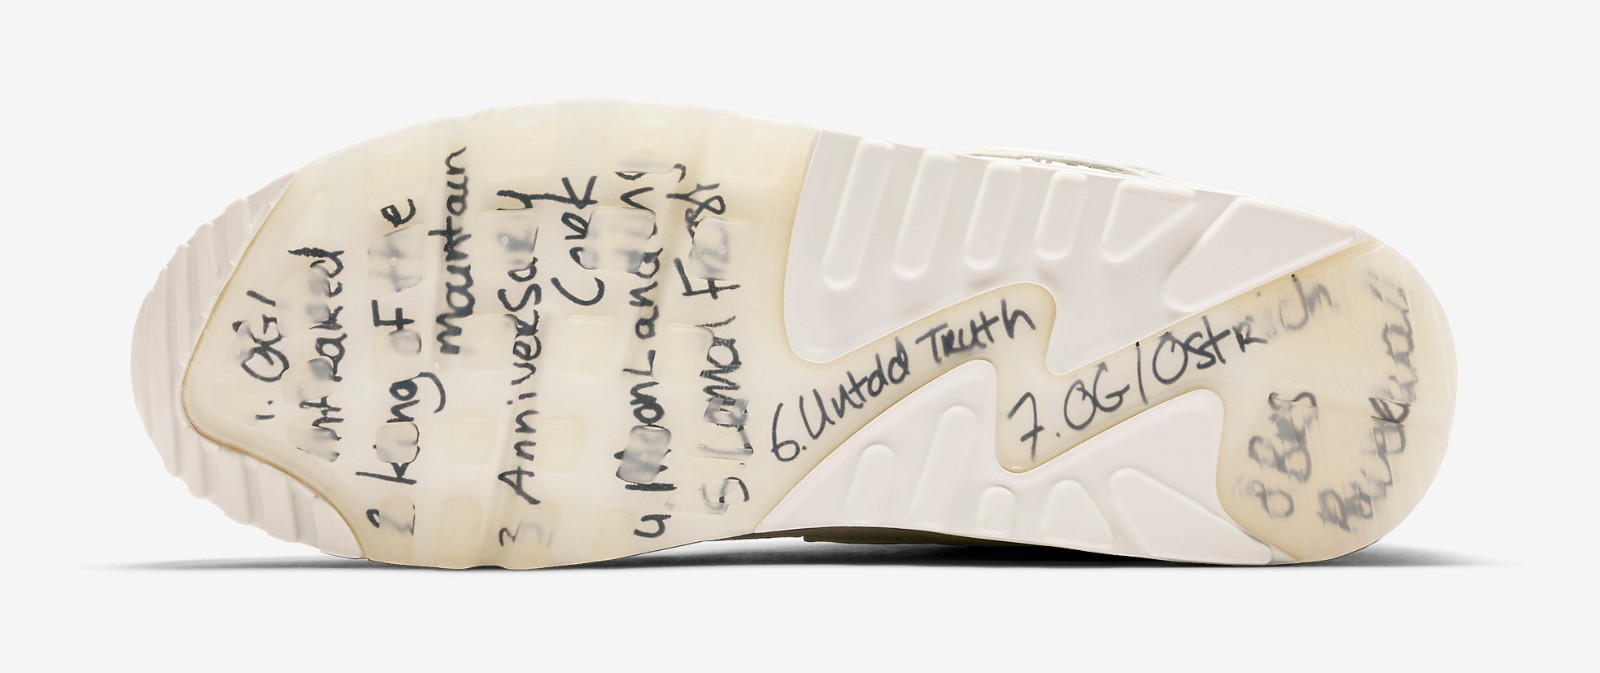 1. OG/
Infrared
2 king of the
mountain
3 Anniversary
Cork
4. Moon Landing
5.
6. Untold Truth
7. OG/Ostrich
8 BRS